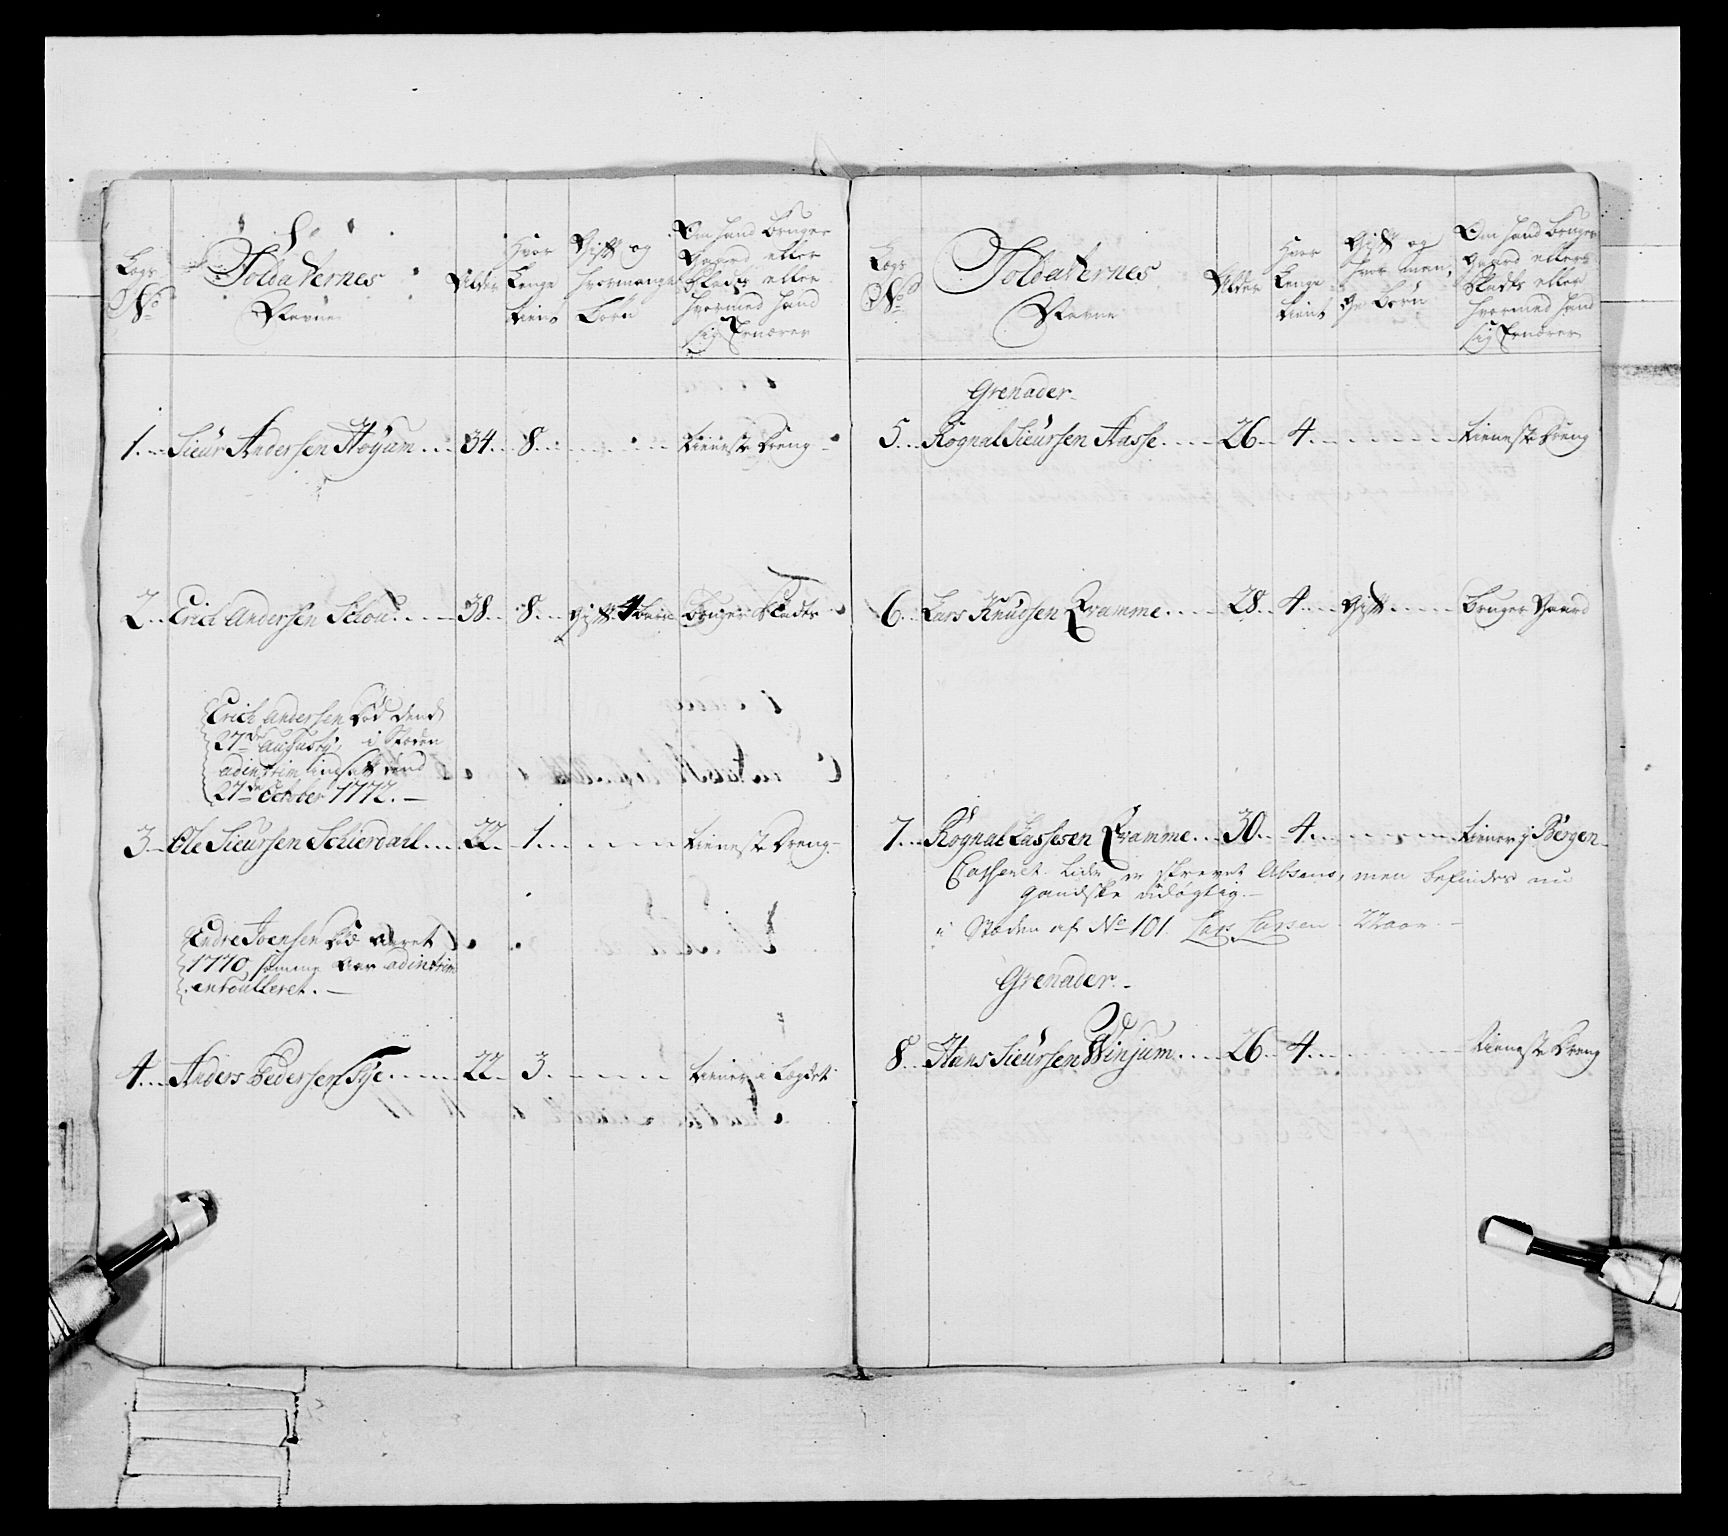 Lægs
No
Soldaternes
Navne
Alder
Hvor
Lenge
tient
Gift og
hvormange
Børn
Om hand bruger
Gaard eller
Pladtz eller
hvormed hand
sig Ernærer
1 Sieur Andersen Høyum 34 8 tieneste Dreng
2 Erich Andersen Schou 38 8 gift 4 Børn bruger Pladts
Erich Andersen død dend
27de Augusty, i Stæden
adintrim indsatt dend
27de October 1772.
3 Ole Sieursen Schierdahl 22 1 tieneste Dreng
Endre Joensen død Aaret
1770, samme Aar adintrim
enroulleret.
4 Anders Pedersen Sye 22 3 tiener i Lægdet
Lægs
No
Soldaternes
Navne
Alder
Hvor
Lenge
tient
Gift og
hvor man,
ge Børn
Om hand bruger
Gaard eller
Pladts eller
hvormed hand
sig Ernærer
Grenader
5 Rognal Sieursen Aasse 26 4 tieneste Dreng
6 Lars Knudsen Qvamme 28 4 gift bruger Gaard
7 Rognal Lassesen Qvamme 30 4 tiener i Bergen
Casseret. er skrevet Absens, men befindes nu
gandske udøgtig.
i Stæden af No 101 Lars Larsen 22 aar
Grenader
8 Hans Sieursen Winjum 26 4 tieneste Dreng